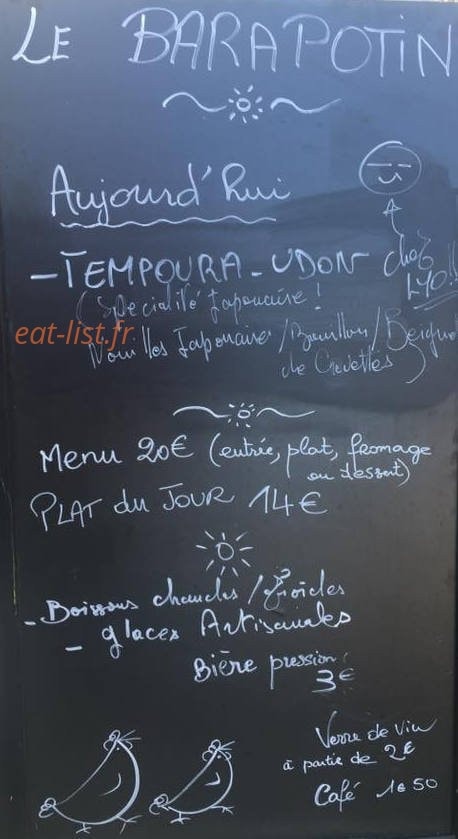 LE BARAPOTIN
Aujourd'hui
- TEMPOURA - UDON chez LYO!!
(Spécialité Japonaise!
eat-list.fr
Nouilles Japonaises/Bouillon/Beignets
de Crevettes)
Menu 20€ (entrée, plat, fromage
ou dessert)
PLAT du JOUR 14€
- Boissons chaudes / froides
- glaces Artisanales
Bière pression:
3€
Verre de vin
à partir de 2€
Café 1€50